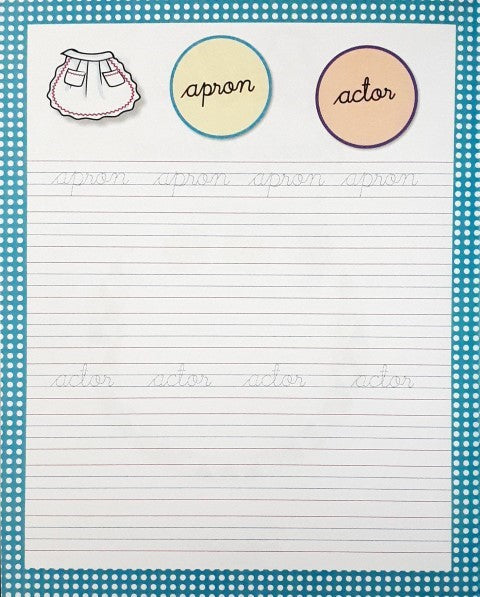 apron actor
apron apron apron apron
actor actor actor actor